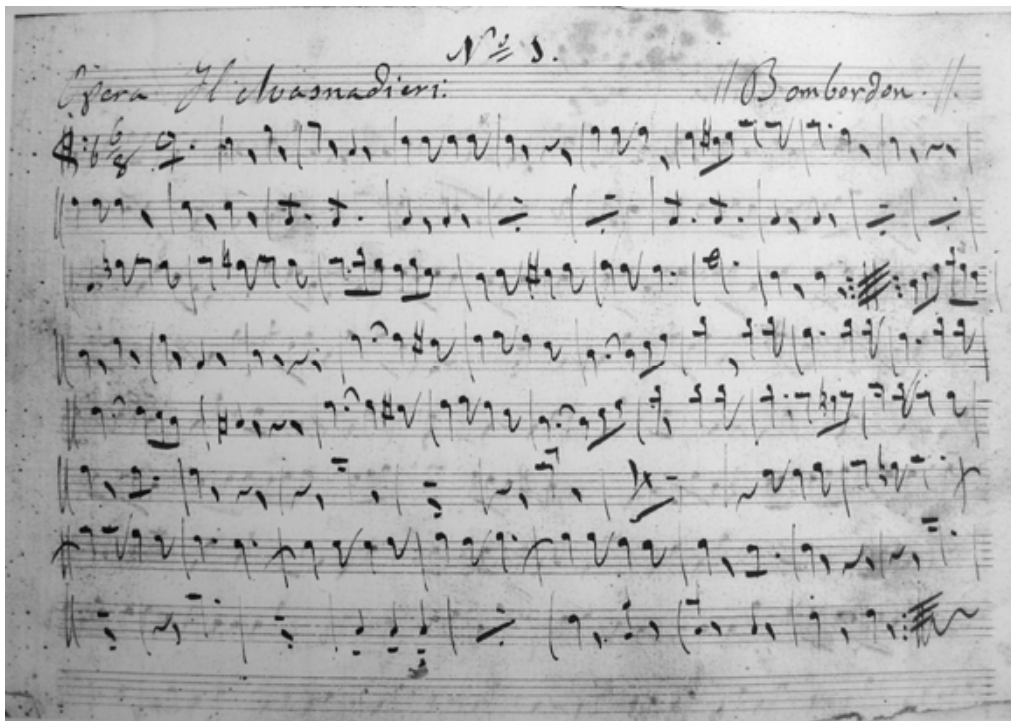 Nº 1.
Opera Il Masnadieri. // Bomberdon. //
6
8